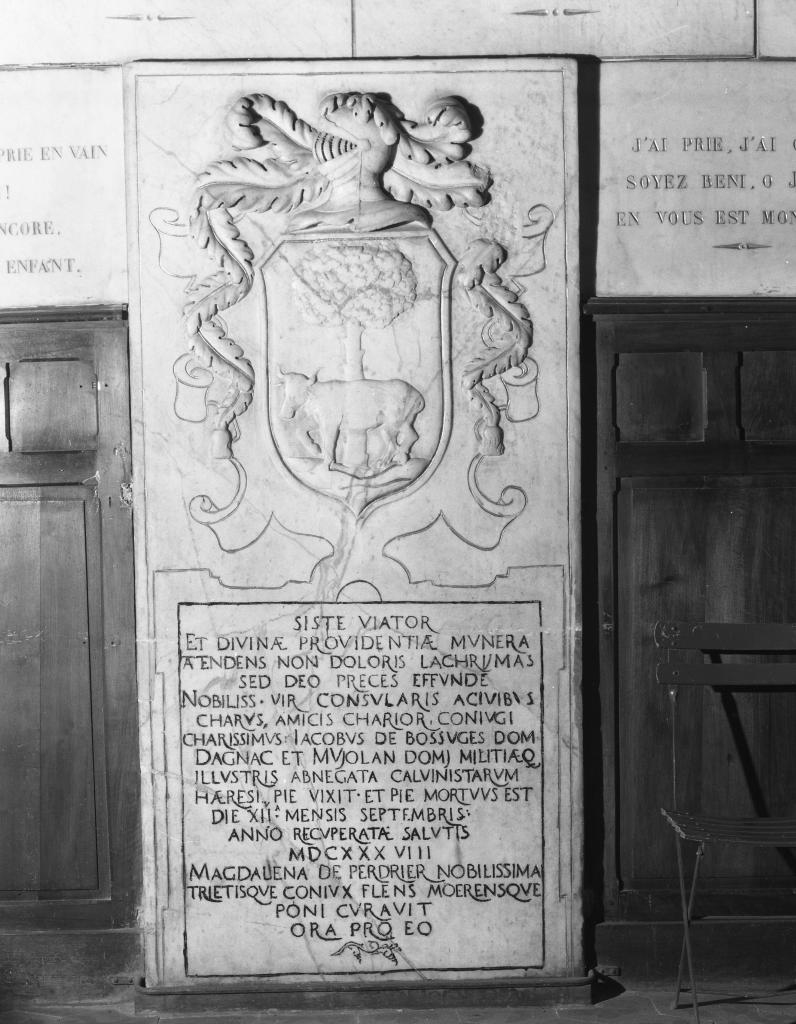 PRIE EN VAIN
!
NCORE.
ENFANT.
J'AI PRIE, J'AI
SOYEZ BENI, O J
EN VOUS EST MON
SISTE VIATOR
ET DIVINÆ PROVIDENTIÆ MVNERA
ATENDENS NON DOLORIS LACHRIJMAS
SED DEO PRECES EFFVNDE
NOBILISS · VIR CONSVLARIS ACIVIBVS
CHARVS, AMICIS CHARIOR, CONIVGI
CHARISSIMVS: IACOBVS DE BOSSVGES DOM
DAGNAC ET MVJOLAN DOMJ MILITIÆQ
ILLVSTRIS ABNEGATA CALVINISTARVM
HÆRESI, PIE VIXIT · ET PIE MORTVVS EST
DIE XII A MENSIS SEPTEMBRIS ·
ANNO RECVPERATÆ SALVTIS
MDCXXXVIII
MAGDALENA DE PERDRIER NOBILISSIMA
TRIETISQVE CONIVX FLENS MOERENSQVE
PONI CVRAVIT
ORA PRO EO